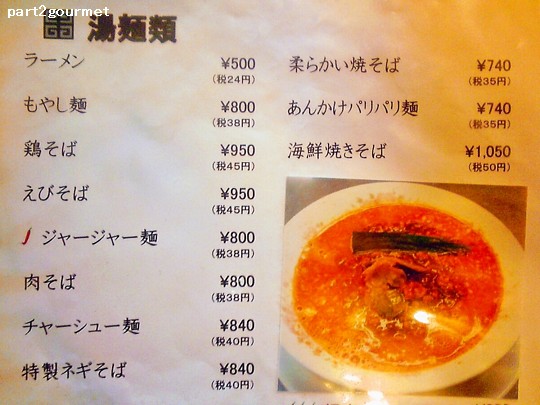 part2gourmet
湯麺類
ラーメン ¥500
(税24円)
もやし麺 ¥800
(税38円)
鶏そば ¥950
(税45円)
えびそば ¥950
(税45円)
ジャージャー麺 ¥800
(税38円)
肉そば ¥800
(税38円)
チャーシュー麺 ¥840
(税40円)
特製ネギそば ¥840
(税40円)
柔らかい焼そば ¥740
(税35円)
あんかけパリパリ麺 ¥740
(税35円)
海鮮焼きそば ¥1,050
(税50円)